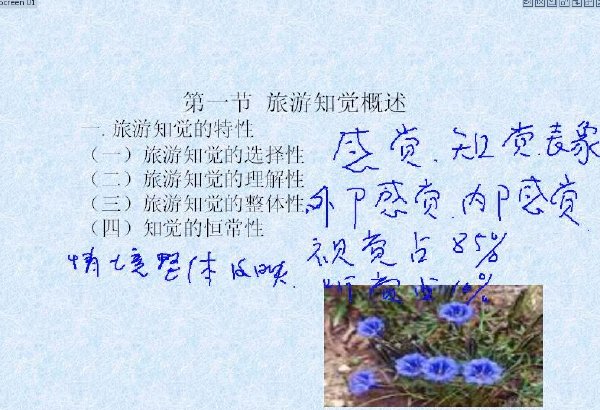 Screen 01
第一节 旅游知觉概述
一.旅游知觉的特性
(一)旅游知觉的选择性
(二)旅游知觉的理解性
(三)旅游知觉的整体性
(四)知觉的恒常性
感觉.知觉.表象
外卩感觉.内卩感觉.
视觉占85%
听觉占10%
情境整体反映.